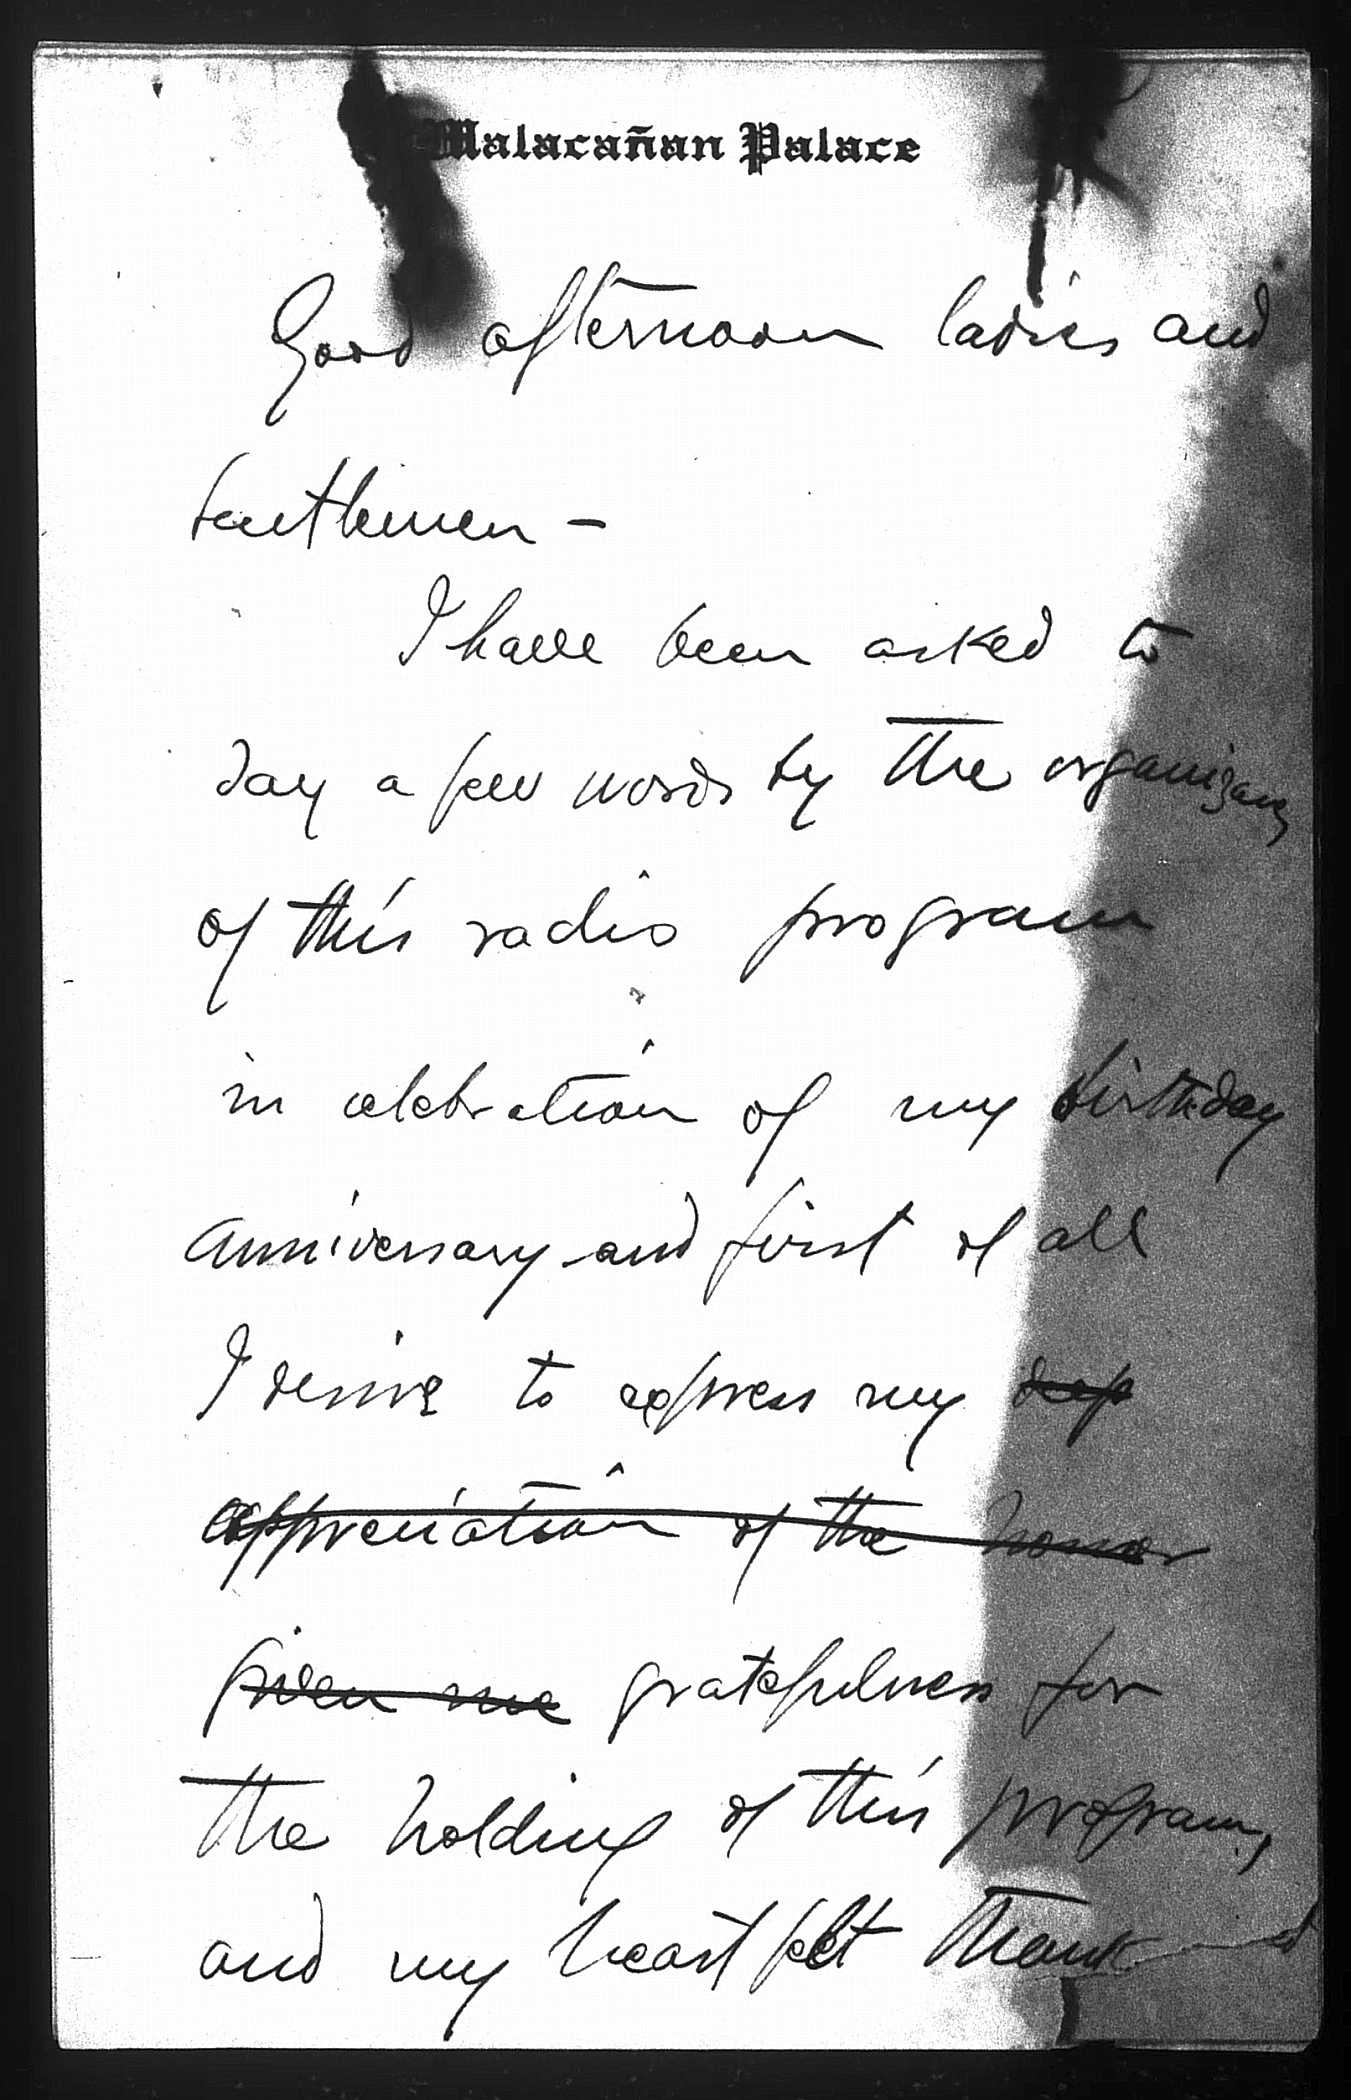 Malacañan Palace
Good afternoon ladies and
Gentlemen –
I have been asked to
say a few words by the organizers
of this radio program
in celebration of my birthday
anniversary and first of all
I desire to express my deep
appreciation of the honor
given me gratefulness for
the holding of this program,
and my heartfelt thank